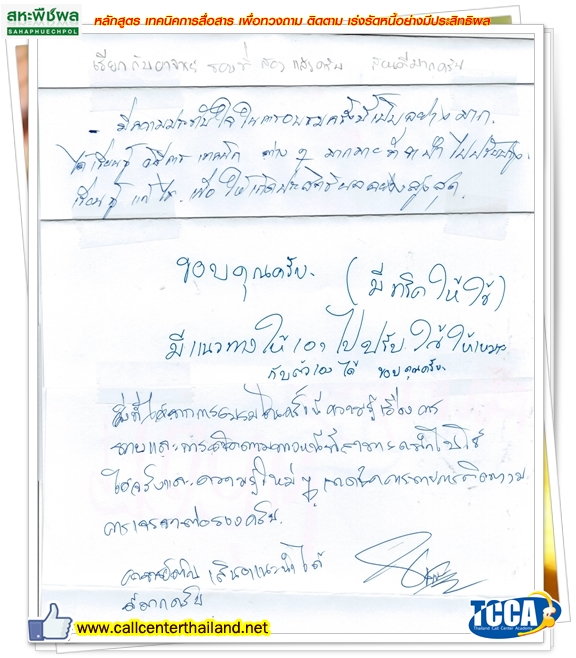 สหะพืชผล
SAHAPHUECHPOL
หลักสูตร เทคนิคการสื่อสาร เพื่อทวงถาม ติดตาม เร่งรัดหนี้อย่างมีประสิทธิผล
เรียนกับอาจารย์ รอบที่ สอง แล้วครับ สอนดีมากครับ
- มีความประทับใจในการอบรมครั้งนี้เป็นอย่างมาก.
ได้เรียนรู้ วิธีการ เทคนิค ต่าง ๆ มากมาย ที่จะนำไปปรับปรุง.
เรียนรู้ แก้ไข. เพื่อให้เกิดประสิทธิผลอย่างสูงสุด.
ขอบคุณครับ.
(มี ทริค ให้ใช้)
มีแนวทางให้เอาไปปรับใช้ให้เหมาะ
กับตัวเองได้ ขอบคุณครับ.
สิ่งที่ได้จากการอบรมในครั้งนี้ ความรู้เรื่องการ
ขายและการติดตามทวงหนี้ที่สามารถนำไปใช้
ได้จริงและความรู้ใหม่ๆ การติดตาม
การเจรจาต่อรองครับ.
แนะนำได้
ดีมากครับ
www.callcenterthailand.net
TCCA
Thailand Call Center Academy